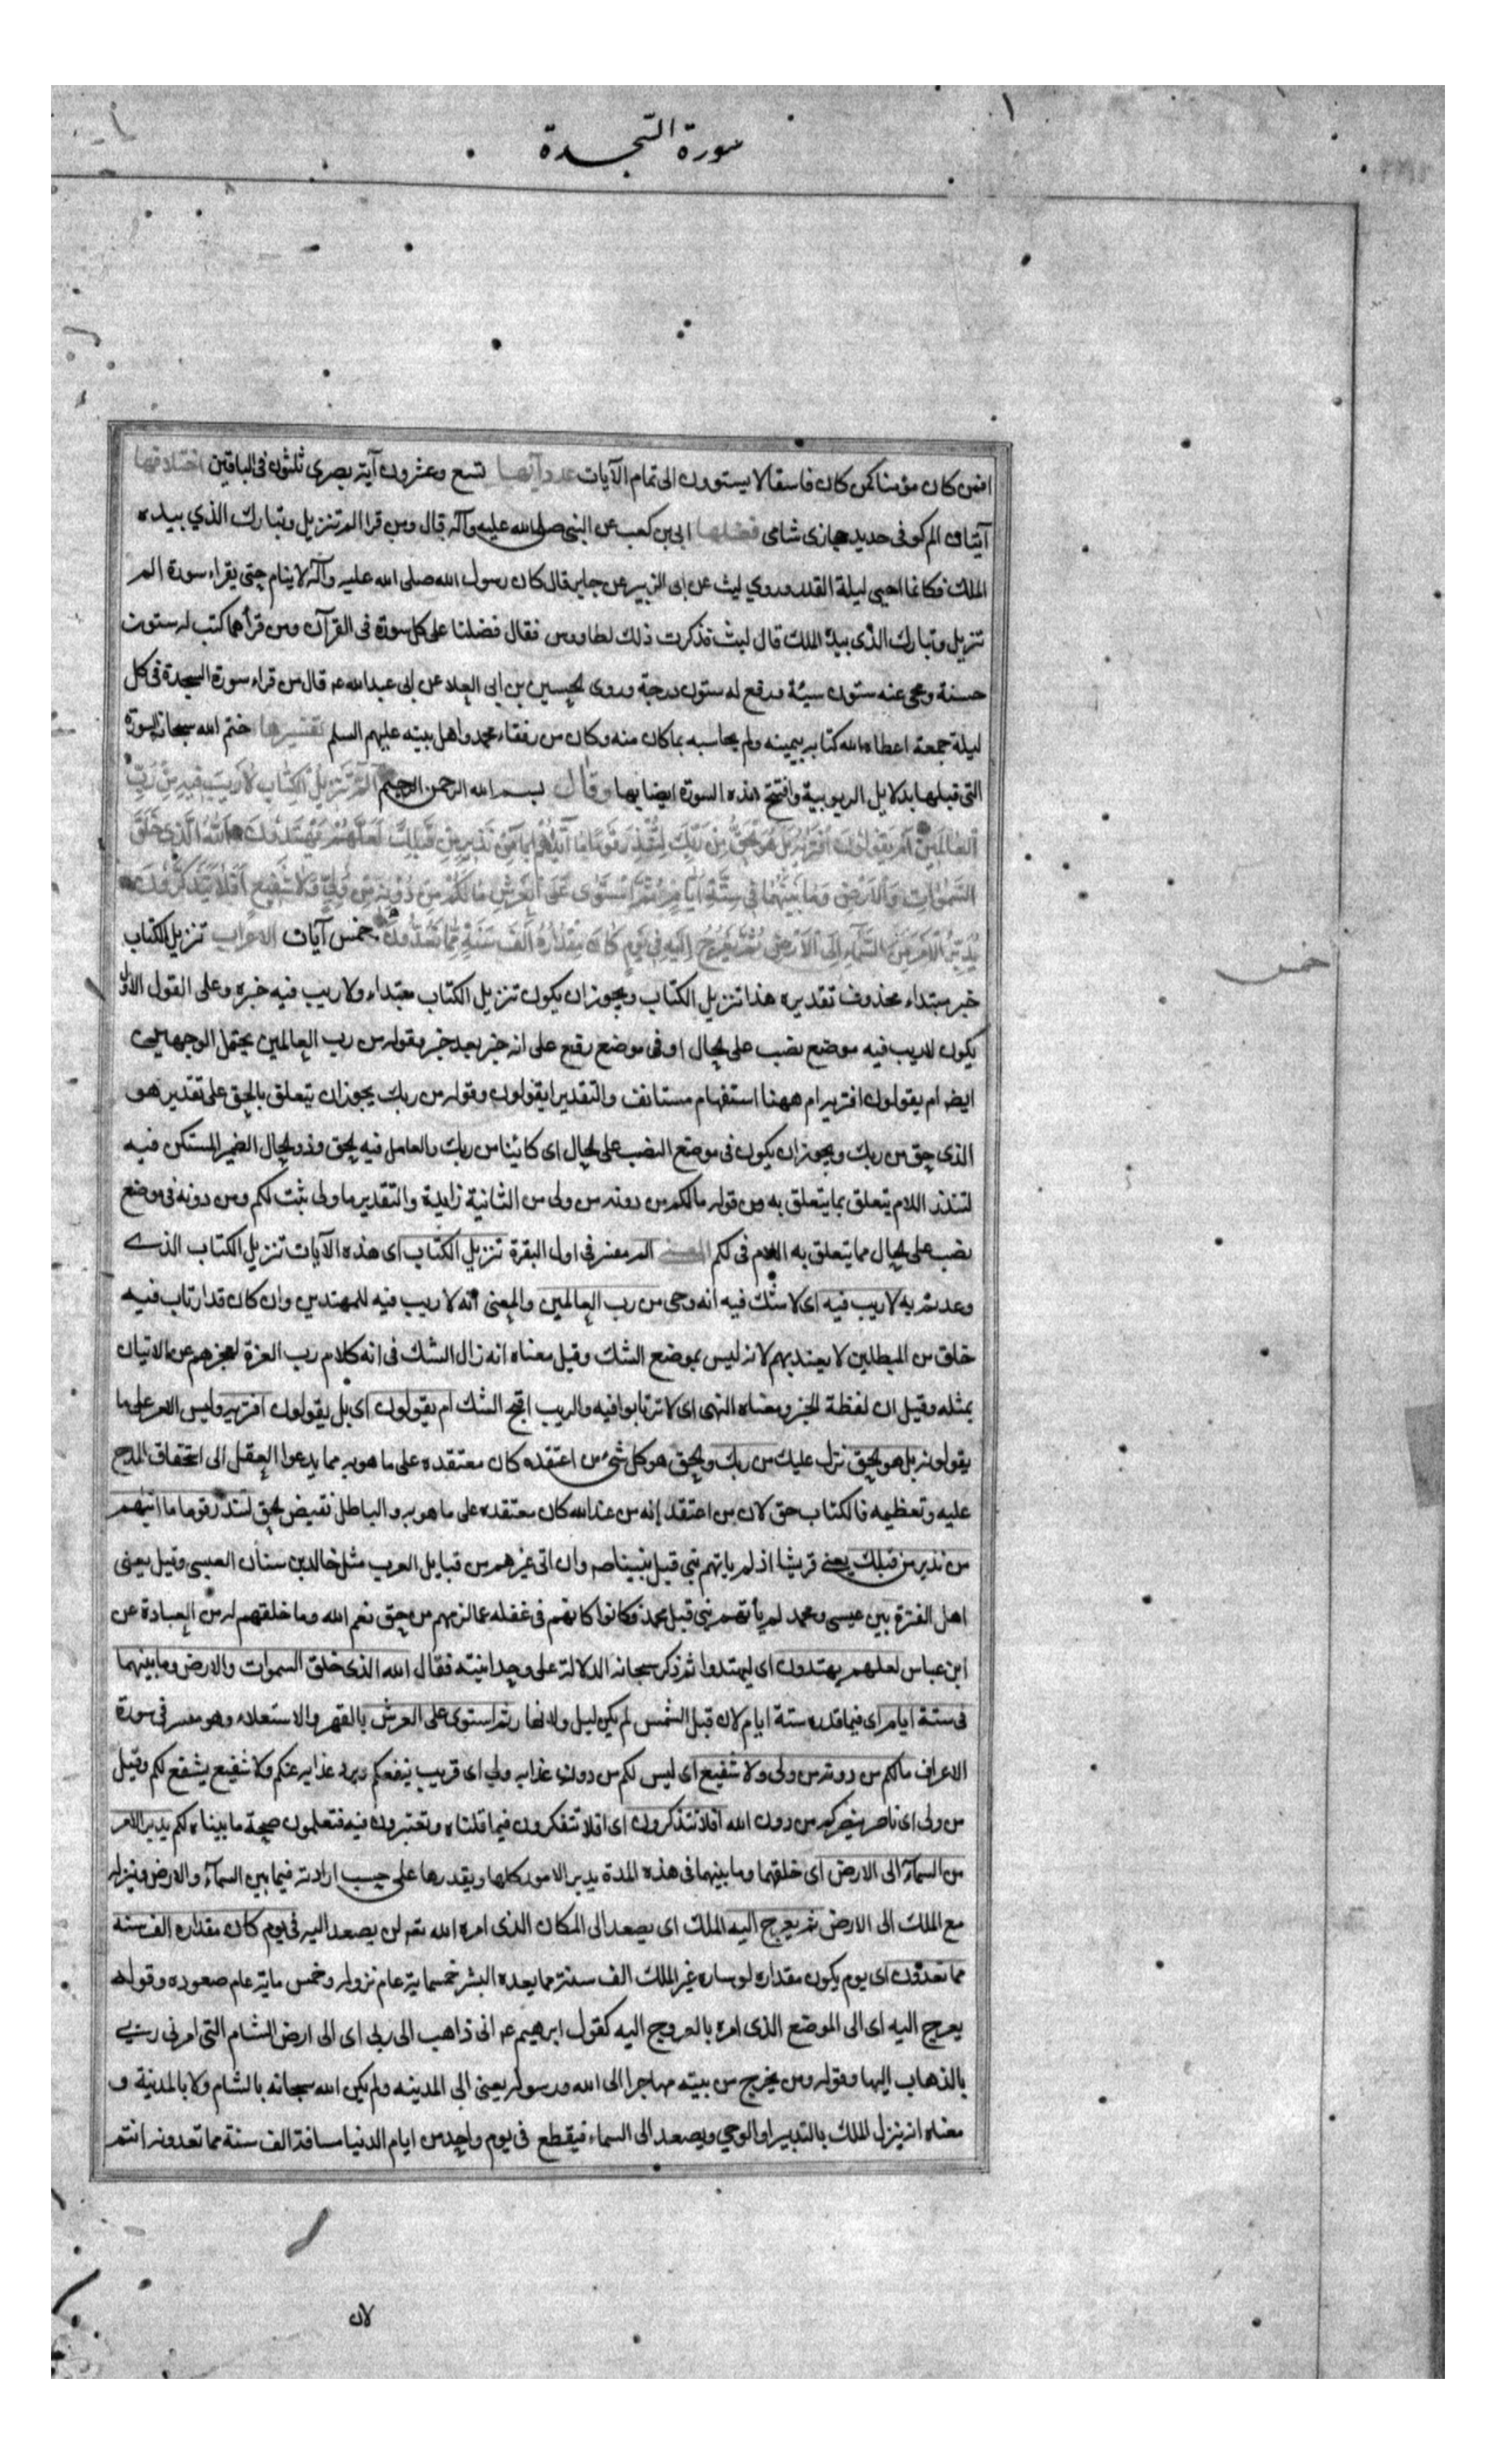 سورة السجدة
افمن كان مؤمنا كمن كان فاسقا لا يستوون الى تمام الآيات عدد آيها تسع وعشرون آية بصرى ثلثون فى الباقين اختلافها
آيتان الم كوفى جديد حجازى شامى فضلها ابى بن كعب عن النبى صلى الله عليه وآله قال ومن قرا الم تنزيل وتبارك الذي بيده
الملك فكانما احيى ليلة القدر وروي ليث عن ابى الزبير عن جابر قال كان رسول الله صلى الله عليه وآله لا ينام حتى يقراء سورة الم
تنزيل وتبارك الذى بيده الملك قال ليث فذكرت ذلك لطاوس فقال فضلتا على كل سورة فى القرآن ومن قرأهما كتب له ستون
حسنة ومحى عنه ستون سيئة ورفع له ستون درجة وروى الحسين بن ابى العلا عن ابى عبدالله ع قال من قراء سورة السجدة فى كل
ليلة جمعة اعطاه الله كتابه بيمينه ولم يحاسبه بما كان منه وكان من رفقاء محمد واهل بيته عليهم السلم تفسيرها ختم الله سبحانه السورة
التى قبلها بدلايل الربوبية وافتتح هذه السورة ايضا بها وقال بسم الله الرحمن الرحيم الم تنزيل الكتاب لا ريب فيه من رب
العالمين ام يقولون افتريه بل هو الحق من ربك لتنذر قوما ما اتيهم من نذير من قبلك لعلهم يهتدون الله الذى خلق
السموات والارض وما بينهما فى ستة ايام ثم استوى على العرش ما لكم من دونه من ولى ولا شفيع افلا تتذكرون
يدبر الامر من السماء الى الارض ثم يعرج اليه فى يوم كان مقداره الف سنة مما تعدون خمس آيات الاعراب تنزيل الكتاب
خمس
خبر مبتداء محذوف تقديره هذا تنزيل الكتاب ويجوز ان يكون تنزيل الكتاب مبتداء ولا ريب فيه خبره وعلى القول الاول
يكون لا ريب فيه موضع نصب على الحال او فى موضع رفع على انه خبر بعد خبر وقوله من رب العالمين يحتمل الوجهين
ايضا ام يقولون افتريه ام ههنا استفهام مستانف والتقدير ايقولون وقوله من ربك يجوز ان يتعلق بالحق على تقدير هو
الذى حق من ربك ويجوز ان يكون فى موضع النصب على الحال اى كائنا من ربك والعامل فيه الحق وذو الحال الضمير المستكن فيه
لتنذر اللام يتعلق بما يتعلق به من قوله ما لكم من دونه من ولى من الثانية زايدة والتقدير ما ولى ثبت لكم ومن دونه فى موضع
نصب على الحال مما يتعلق به اللام فى لكم المعنى الم مفسر فى اول البقرة تنزيل الكتاب اى هذه الآيات تنزيل الكتاب الذى
وعدتم به لا ريب فيه اى لا شك فيه انه وحى من رب العالمين والمعنى انه لا ريب فيه للمهتدين وان كان قد ارتاب فيه
خلق من المبطلين لا يعتد بهم لانه ليس بموضع الشك وقيل معناه انه زال الشك فى انه كلام رب العزة لعجزهم عن الاتيان
بمثله وقيل ان لفظة الخبر ومعناه النهى اى لا ترتابوا فيه والريب اقبح الشك ام يقولون اى بل يقولون افتريه وليس الامر على ما
يقولونه بل هو الحق نزل عليك من ربك والحق هو كل شئ من اعتقده كان معتقده على ما هو به مما يدعوا العقل الى استحقاق المدح
عليه وتعظيمه فالكتاب حق لان من اعتقد انه من عند الله كان معتقده على ما هو به والباطل نقيض الحق لتنذر قوما ما اتيهم
من نذير من قبلك يعنى قريشا اذ لم ياتهم نبى قبل نبينا ص وان اتى غيرهم من قبايل العرب مثل خالد بن سنان العبسى وقيل يعنى
اهل الفترة بين عيسى ومحمد لم يأتهم نبى قبل محمد فكانوا كانهم فى غفلة عما لزمهم من حق نعم الله وما خلقهم له من العبادة عن
ابن عباس لعلهم يهتدون اى ليهتدوا ثم ذكر سبحانه الدلالة على وحدانيته فقال الله الذى خلق السموات والارض وما بينهما
فى ستة ايام اى فيما قدره ستة ايام لان قبل الشمس لم يكن ليل ولا نهار ثم استوى على العرش بالقهر والاستعلاء وهو مفسر فى سورة
الاعراف ما لكم من دونه من ولى ولا شفيع اى ليس لكم من دون عذابه ولي اى قريب ينفعكم ويرد عذابه عنكم ولا شفيع يشفع لكم وقيل
من ولى اى ناصر ينصركم من دون الله افلا تتذكرون اى افلا تتفكرون فيما قلناه وتعتبرون فيه فتعلمون صحة ما بيناه لكم يدبر الامر
من السماء الى الارض اى خلقهما وما بينهما فى هذه المدة يدبر الامور كلها ويقدرها على حسب ارادته فيما بين السماء والارض وينزله
مع الملك الى الارض ثم يعرج اليه الملك اى يصعد الى المكان الذى امره الله تعه ان يصعد اليه فى يوم كان مقداره الف سنة
مما تعدون اى يوم يكون مقداره لو ساره غير الملك الف سنة مما يعده البشر خمسماية عام نزوله وخمس ماية عام صعوده وقوله
يعرج اليه اى الى الموضع الذى امره بالعروج اليه كقول ابرهيم ع انى ذاهب الى ربى اى الى ارض الشام التى امرنى ربى
بالذهاب اليها وقوله ومن يخرج من بيته مهاجرا الى الله ورسوله يعنى الى المدينه ولم يكن الله سبحانه بالشام ولا بالمدينة و
معناه انه ينزل الملك بالتدبير او الوحي ويصعد الى السماء فيقطع فى يوم واحد من ايام الدنيا مسافة الف سنة مما تعدونه انتم
لان